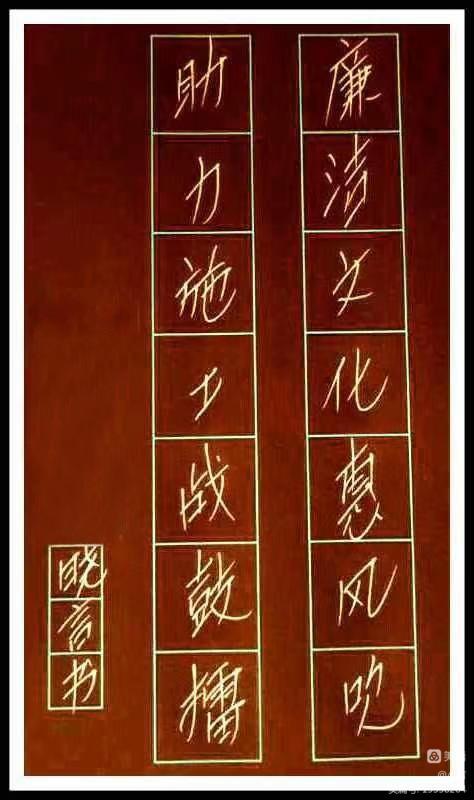 廉洁文化惠风吹
助力施士战鼓擂
晓言书